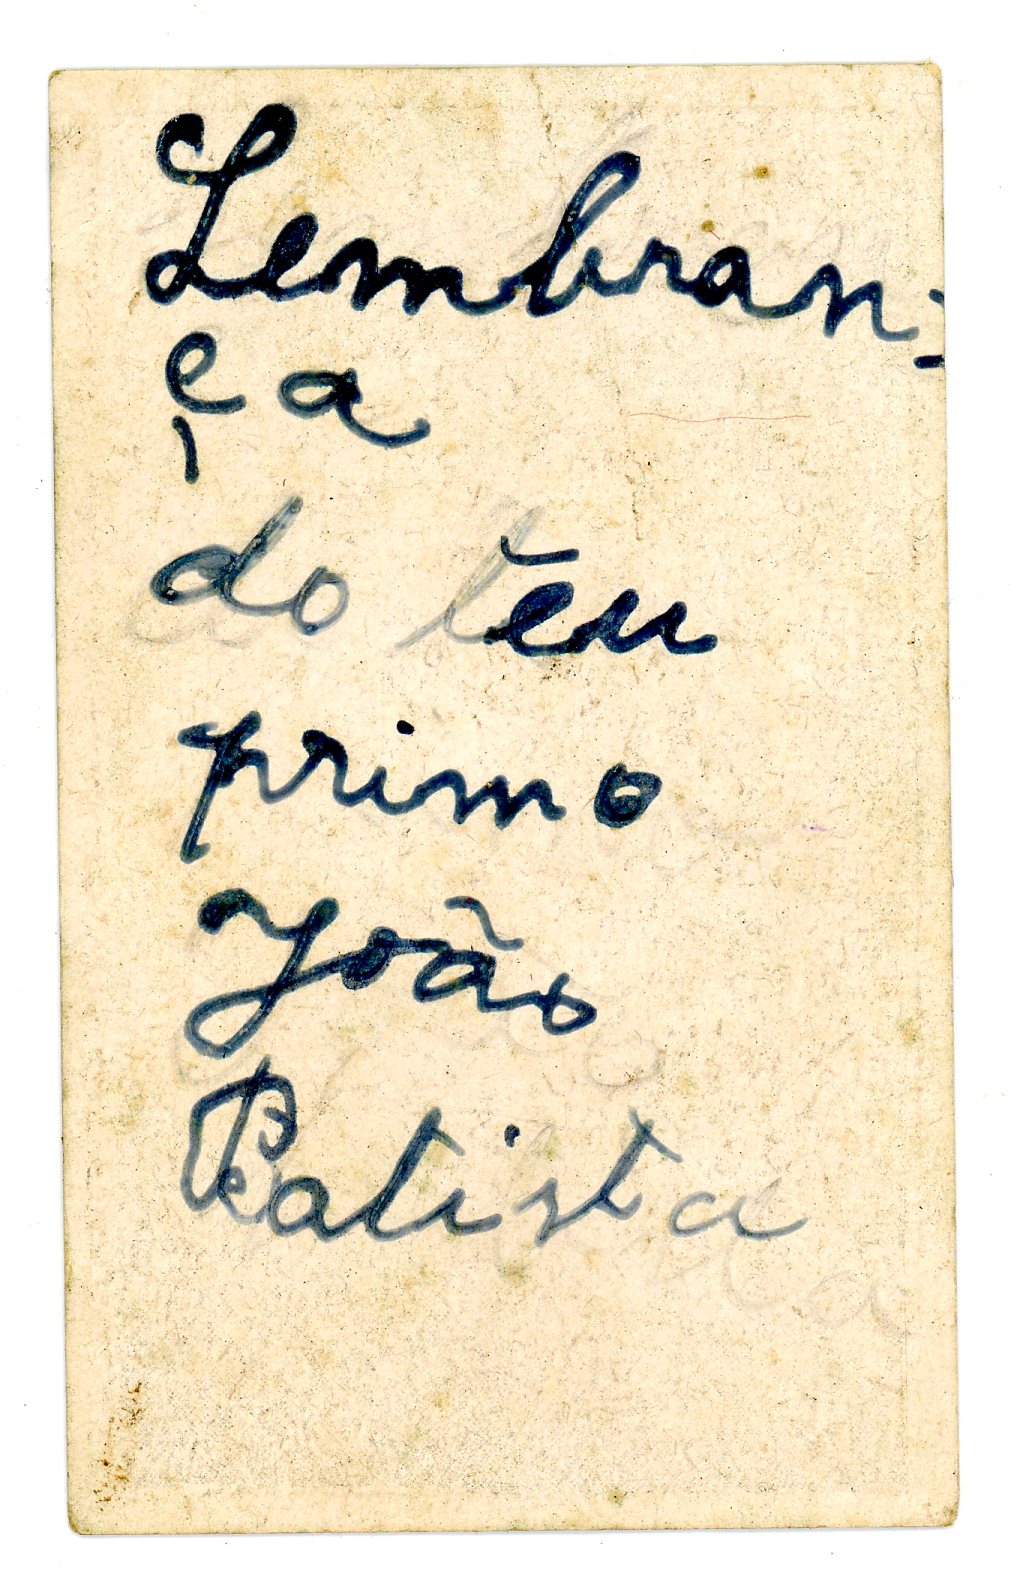 Lembran=
ça
do teu
primo
João
Batista